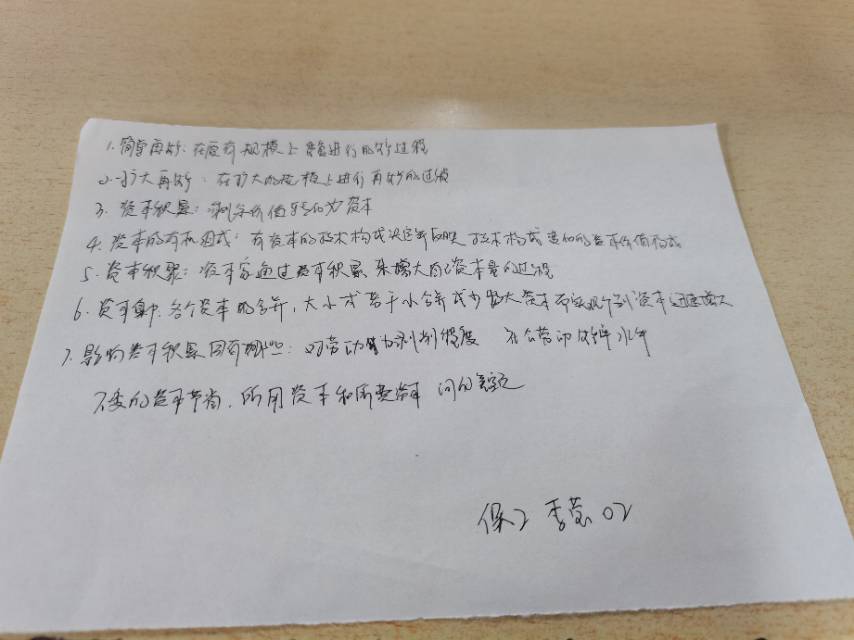 1. 简单再生产：在原有规模上重复进行的生产过程
2. 扩大再生产：在扩大的规模上进行再生产的过程
3. 资本积累：剩余价值转化为资本
4. 资本的有机构成：有资本的技术构成决定并反映技术构成变化的资本价值构成
5. 资本积聚：资本家通过资本积累来增大自己资本量的过程
6. 资本集中：各个资本的合并，大小或若干小合并成少数大资本而实现个别资本迅速增大
7. 影响资本积累因有哪些：对劳动力剥削程度 社会劳动生产率水平
资本节省，所用资本和所费资本间的差额
保2 李莹 02